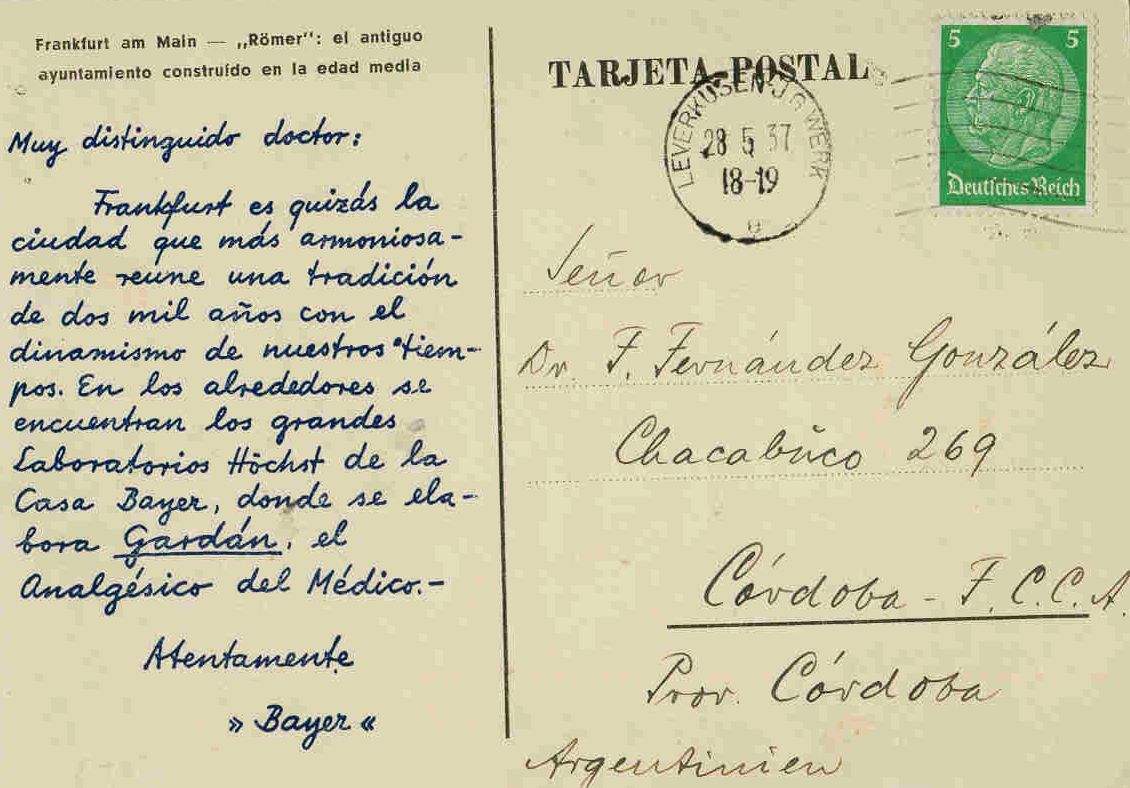 Frankfurt am Main — „Römer": el antiguo
ayuntamiento construído en la edad media
Muy distinguido doctor:
Frankfurt es quizás la
ciudad que más armoniosa-
mente reúne una tradición
de dos mil años con el
dinamismo de nuestros tiem-
pos. En los alrededores se
encuentran los grandes
Laboratorios Höchst de la
Casa Bayer, donde se ela-
bora Gardán, el
Analgésico del Médico.-
Atentamente
» Bayer «
TARJETA POSTAL
LEVERKUSEN-J.G.WERK
28 5 37
18-19
e
5 5
Deutsches Reich
Señor
Dr. F. Fernández González
Chacabuco 269
Córdoba - F.C.C.A.
Prov. Córdoba
Argentinien